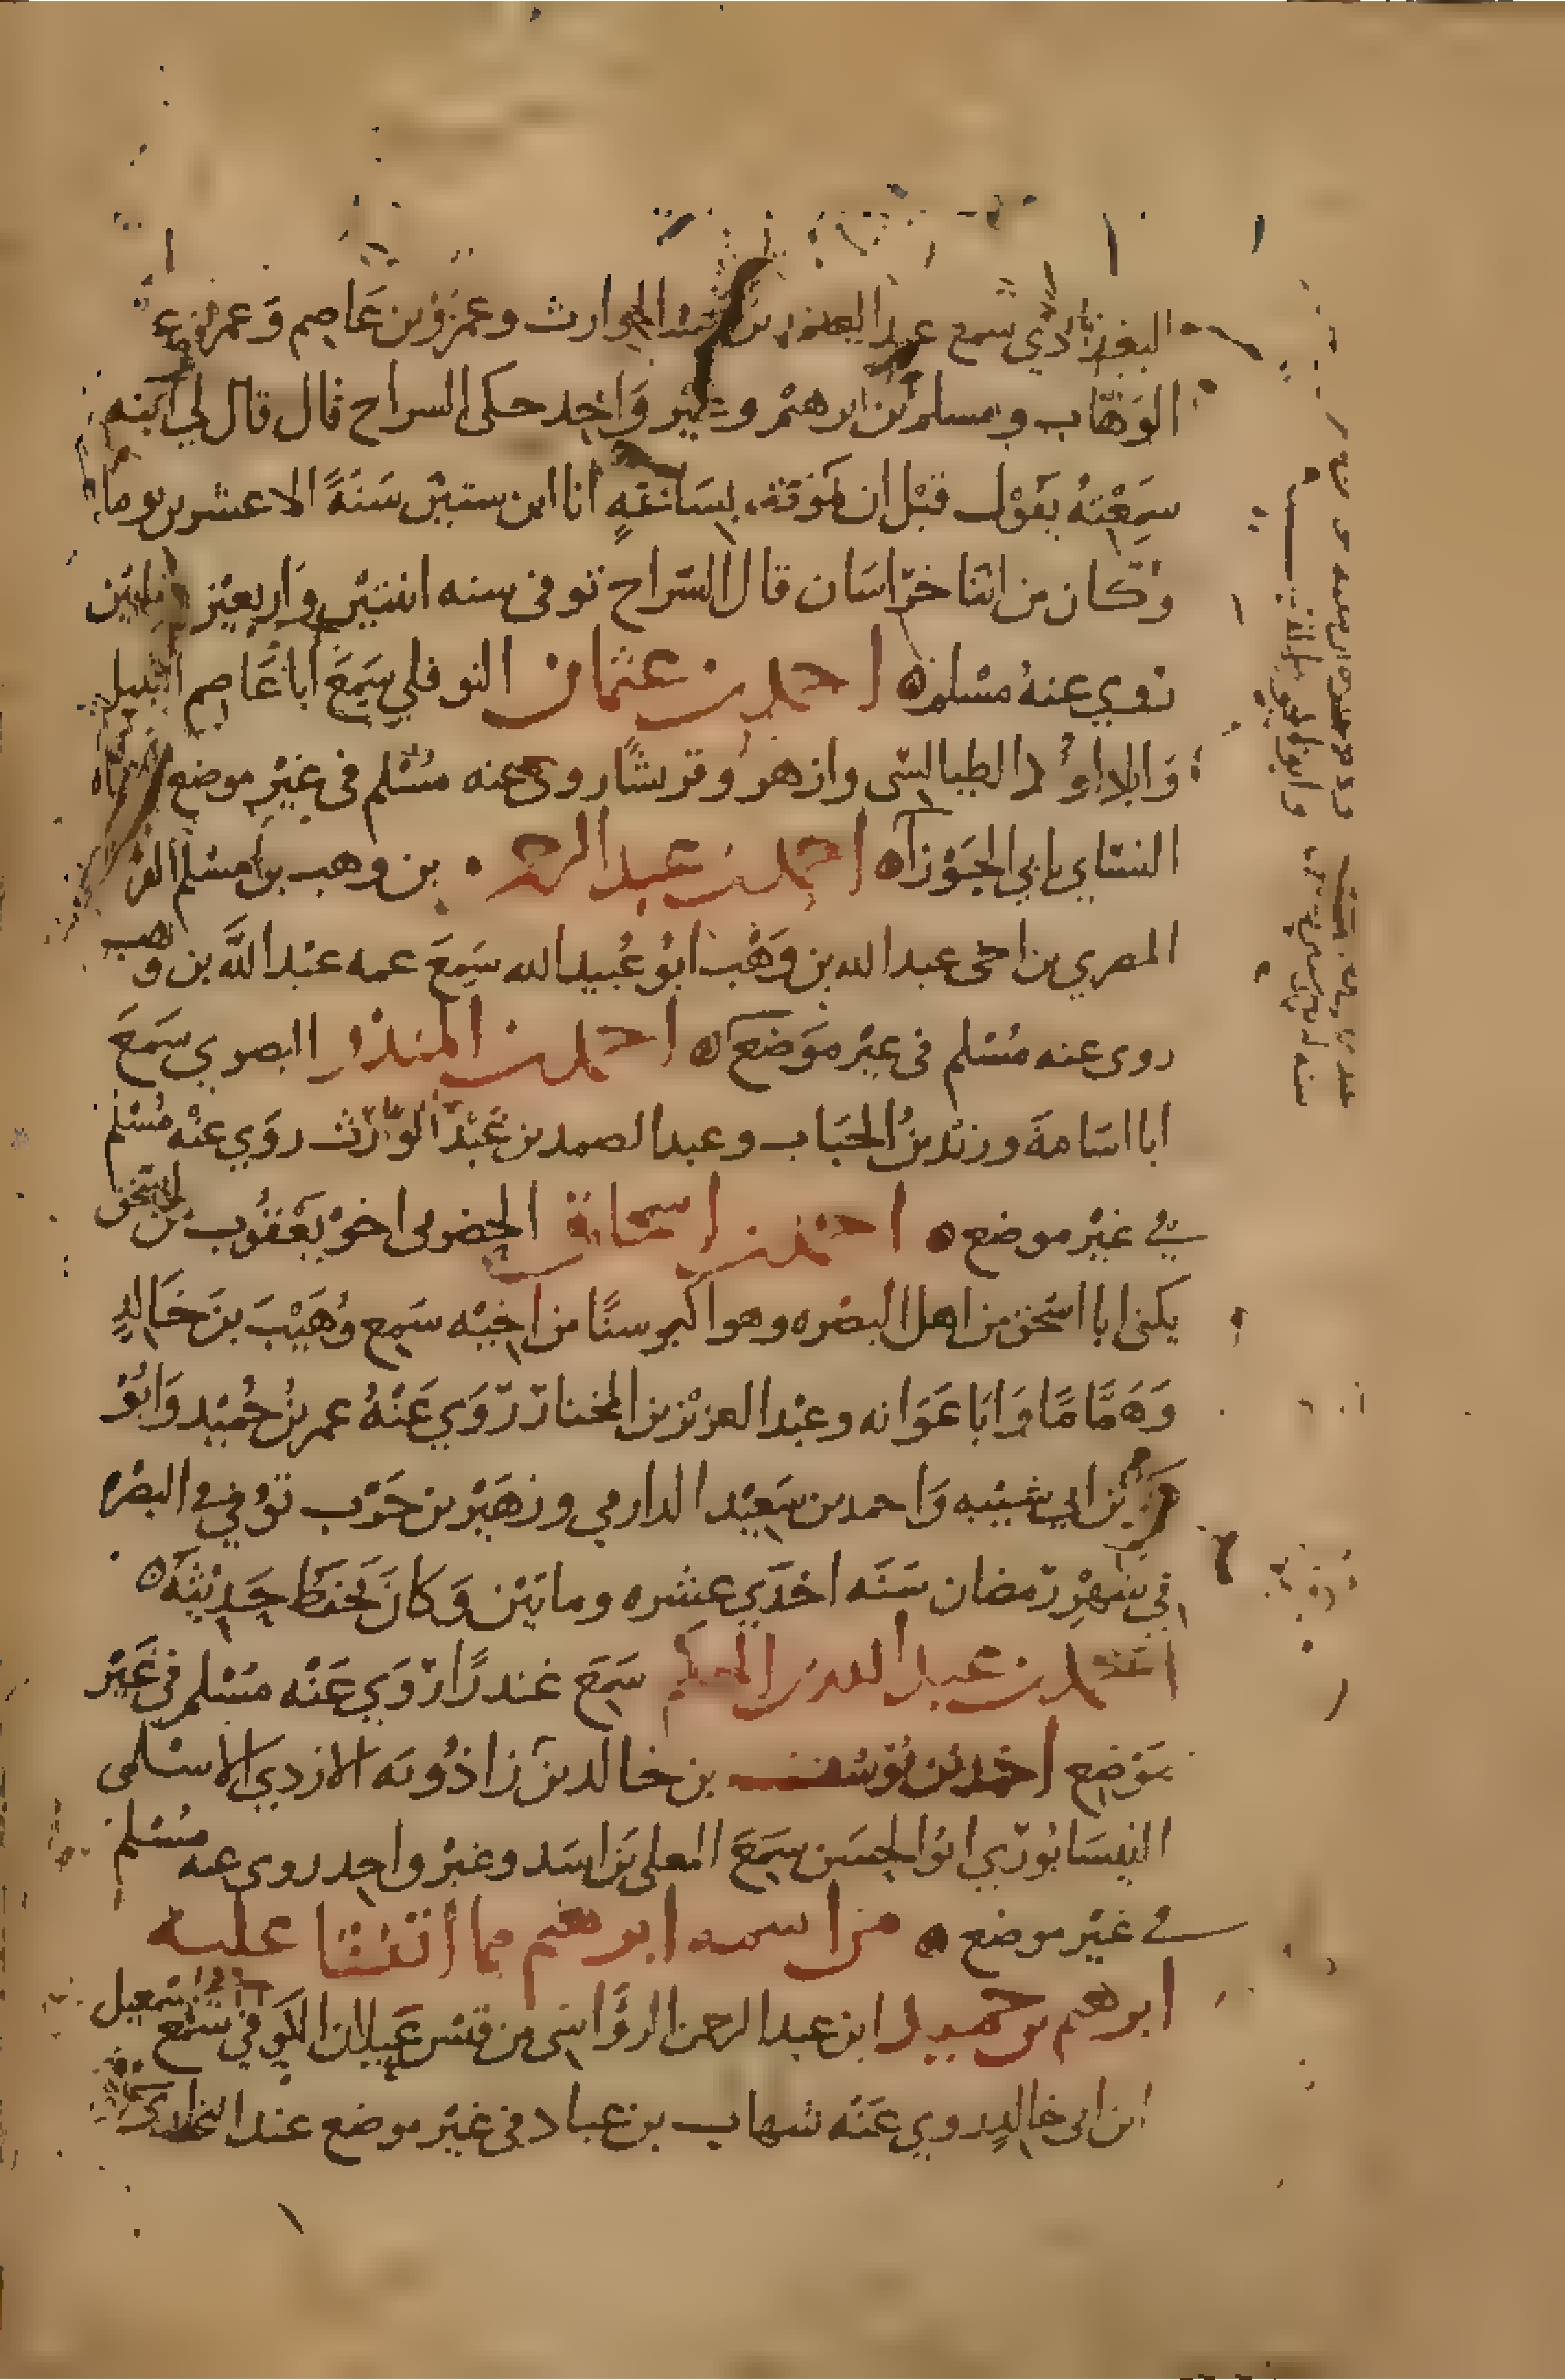 البغدادي سمع عبد الصمد بن عبد الوارث وعمرو بن عاصم وعمر بن عبد
الوهاب ومسلم بن ابرهيم وغير واحد حكى السراج قال قال لي ابنه
سمعته يقول قبل ان موته بساعة انا ابن ستين سنة الا عشرين يوما
وكان من ابنا خراسان قال السراج توفى سنه اثنتين واربعين ومايتين
روي عنه مسلم احمد بن عثمان النوفلي سمع ابا عاصم النبيل
وابا داود الطيالسى وازهر وقريشا روى عنه مسلم فى غير موضع كناه
النساي بابي الجوزآء احمد بن عبد الرحمن بن وهب بن مسلم القرشي
المصري بن اخى عبد الله بن وهب ابو عبيد الله سمع عمه عبد الله بن وهب
روى عنه مسلم فى غير موضع احمد بن المنذر البصري سمع
ابا اسامة وزيد بن الحباب وعبد الصمد بن عبد الوارث روي عنه مسلم
في غير موضع احمد بن اسحاق الحضرمى اخو يعقوب بن اسحق
يكنى ابا اسحق من اهل البصره وهو اكبر سنا من اخيه سمع وهيب بن خالد
وهماما وابا عوانه وعبد العزيز بن المختار روي عنه عمر بن حميد وابو
بكر بن ابي شيبه واحمد بن سعيد الدارمي وزهير بن حرب توفي في البصره
في شهر رمضان سنه احدي عشره ومايتين وكان يحفظ حديثه
احمد بن عبد الله بن الحكم سمع غندرا روي عنه مسلم فى غير
موضع احمد بن يوسف بن خالد بن زاذويه الازدي الاسلمى
النيسابوري ابو الحسن سمع المعلى بن اسد وغير واحد روى عنه مسلم
في غير موضع من اسمه ابرهيم مما اتفقا عليه
ابرهيم بن حميد ابن عبد الرحمن الرؤاسى من قيس عيلان الكوفي سمع اسمعيل
ابن ابى خالد روي عنه شهاب بن عباد في غير موضع عند البخاري